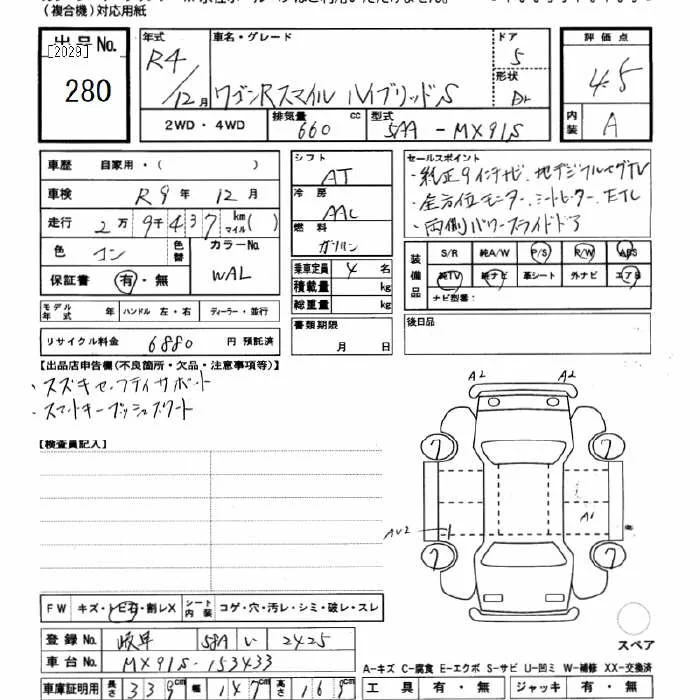 (複合機)対応用紙
出品No.
[2029]
280
年式
R4/12月
車名・グレード
ワゴンRスマイル ハイブリッドS
ドア
5
形状
評価点
4.5
内装
A
2WD・4WD
排気量 660 cc
型式 5AA-MX91S
車歴 自家用・( )
車検 R9年12月
走行 2万9千437km マイル( )
色 コン
色替
カラーNo. WAL
保証書 有・無
シフト AT
冷房 AAC
燃料 ガソリン
乗車定員 4名
積載量 kg
総重量 kg
セールスポイント
・純正9インチナビ、地デジフルセグTV
・全方位モニター、シートヒーター、ETC
・両側パワースライドドア
装備品
S/R 純A/W P/S R/W ABS
純TV 純ナビ 革シート 外ナビ エアB
ナビ型番:
モデル年式 年 ハンドル 左・右 ディーラー・並行
書類期限 月 日
後日品
リサイクル料金 6880 円 預託済
【出品店申告欄(不良箇所・欠品・注意事項等)】
・スズキセーフティサポート
・スマートキープッシュスタート
【検査員記入】
A2 A2
7 7
A1
AU2
7 7
スペア
FW キズ・トビ石・割レX シート内装 コゲ・穴・汚レ・シミ・破レ・スレ
登録No. 岐阜 581 い 2425
車台No. MX91S-153433
A-キズ C-腐食 E-エクボ S-サビ U-凹ミ W-補修 XX-交換済
車庫証明用 長さ 339cm 幅 147cm 高さ 169cm
工具 有・無 ジャッキ 有・無